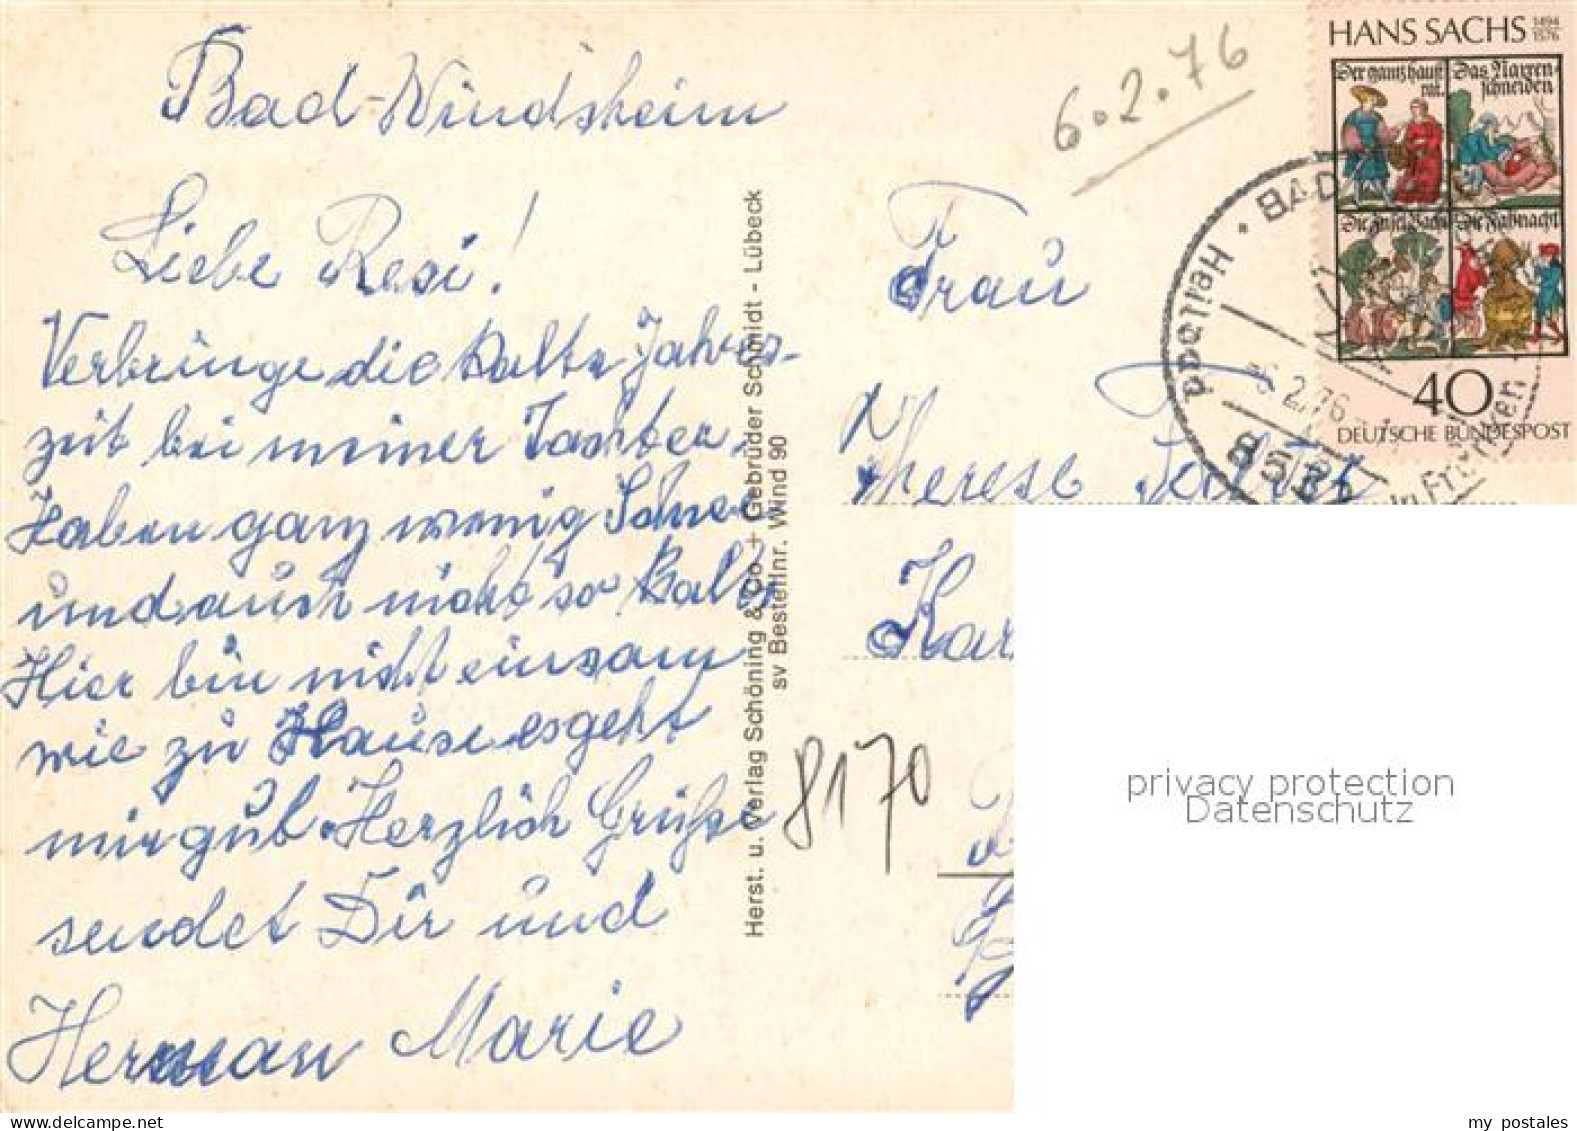 Bad-Windsheim
Liebe Resi!
Verbringe die kalte Jahres-
zeit bei meiner Tochter.
Haben ganz wenig Schnee
und auch nicht so kalt,
Hier bin nicht einsam
wie zu Hause es geht
mir gut. Herzlich Grüße
sendet Dir und
Herman Marie
Herst. u. Verlag Schöning & Co + Gebrüder Schmidt - Lübeck
sv Bestellnr. Wind 90
6.2.76
HANS SACHS 1494 1576
Der gantz hauß rat.
Das Narren-schneiden
Die Insel Bachi
Die Faßnacht
40
DEUTSCHE BUNDESPOST
Heilbad · BAD
-6.2.76
8532
in Franken
Frau
Therese
8170
privacy protection
Datenschutz
my postales